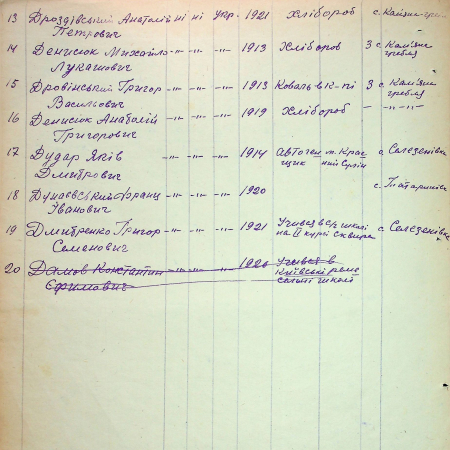 13 Дроздівський Анатолій ні ні укр. 1921 Хлібороб с. Кам'яна гре-
Петрович
14 Денисюк Михайло -"- -"- -"- 1913 Хлібороб 3 с. Кам'яна
Лукашович гребля
15 Дровінський Григор -"- -"- -"- 1913 Коваль в к-пі 3 с. Кам'яна
Васильович гребля
16 Денисюк Анатолій -"- -"- -"- 1919 Хлібороб - -"- -"-
Григорович
17 Дудар Яків -"- -"- -"- 1914 Автоген м. Крас с. Селезенівка
Дмитрович щик ний
18 Дунаєвський Франц -"- -"- -"- 1920 с. Татаринівка
Іванович
19 Дмитренко Григор -"- -"- -"- 1921 Учився в с/г школі с. Селезенівка
Семенович на II курсі Сквира
20 Дамов Константин -"- -"- -"- 1926 Учився в
Єфимович Київській реме
сельній школі